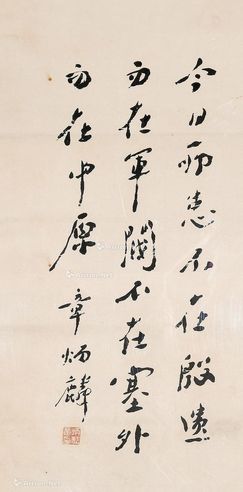 今日所患不在殷遺
而在軍閥不在塞外
而在中原 章炳麟